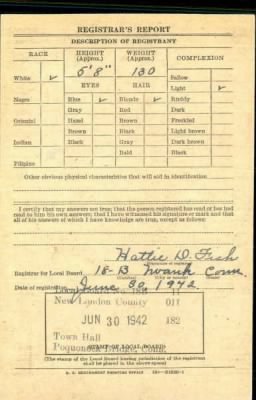 REGISTRAR'S REPORT
DESCRIPTION OF REGISTRANT
RACE HEIGHT (Approx.) WEIGHT (Approx.) COMPLEXION
White ✓ 5' 8" 130 Sallow
EYES HAIR Light ✓
Negro Blue ✓ Blonde ✓ Ruddy
Gray Red Dark
Oriental Hazel Brown Freckled
Brown Black Light brown
Indian Black Gray Dark brown
Bald Black
Filipino
Other obvious physical characteristics that will aid in identification
I certify that my answers are true; that the person registered has read or has had read to him his own answers; that I have witnessed his signature or mark and that all of his answers of which I have knowledge are true, except as follows:
Hattie D. Fish
Registrar for Local Board 18-B Noank Conn.
Date of registration June 30, 1942
New London County 011
JUN 30 1942 182
Town Hall
Poquonock Bridge, Conn.
(STAMP OF LOCAL BOARD)
(The stamp of the Local Board having jurisdiction of the registrant shall be placed in the above space)
U. S. GOVERNMENT PRINTING OFFICE